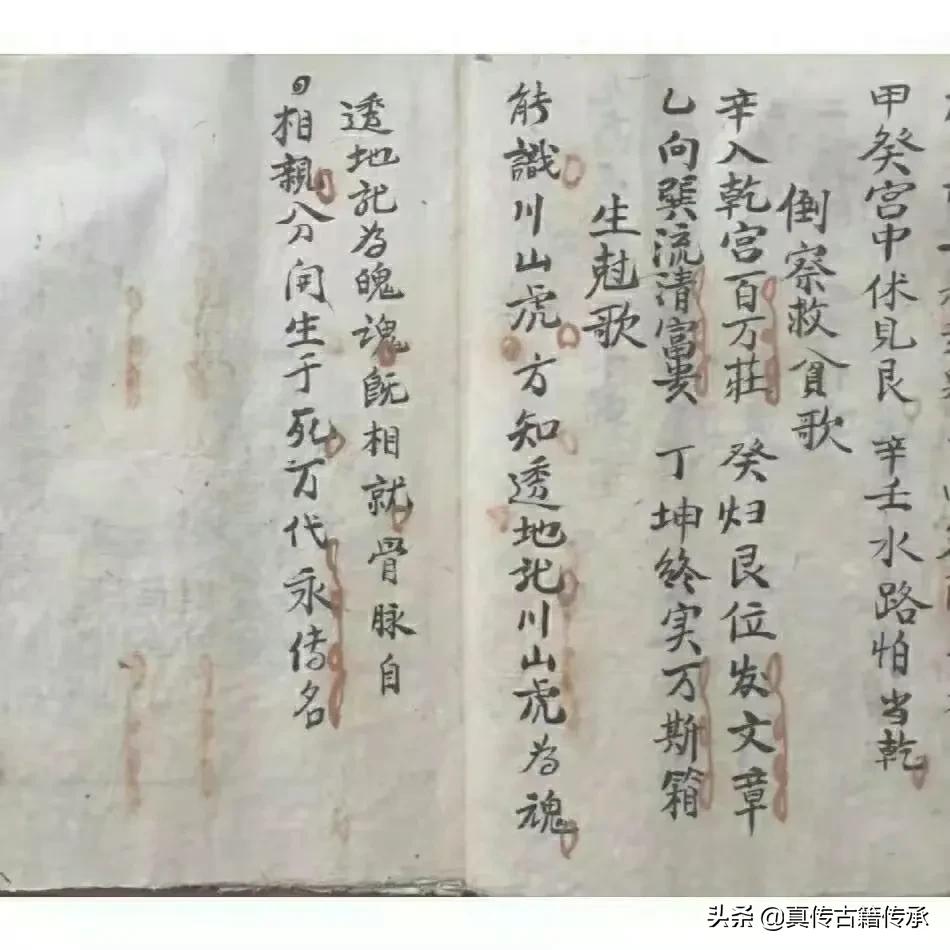 甲癸宫中休見艮 辛壬水路怕当乾
倒察救貧歌
辛入乾宫百万莊 癸归艮位发文章
乙向巽流清富贵 丁坤終实万斯箱
生尅歌
能識川山虎方知透地龙川山虎为魂
透地龙为魄魂既相就骨脉自
相親分開生于死万代永傳名
头条 @真传古籍传承